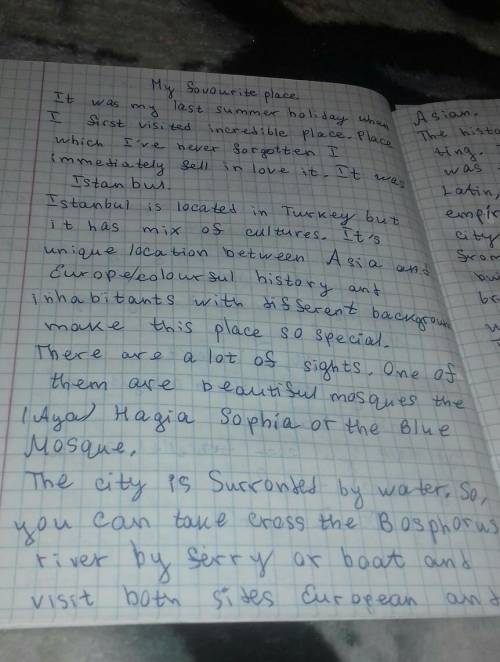 My favourite place.
It was my last summer holiday when
I first visited incredible place. Place
which I've never forgotten I
immediately fell in love it. It was
Istanbul.
Istanbul is located in Turkey but
it has mix of cultures. It's
unique location between Asia and
Europe/colourful history and
inhabitants with different backgroun
make this place so special.
There are a lot of sights. One of
them are beautiful mosques the
(Aya) Hagia Sophia or the Blue
Mosque.
The city is Surronded by water. So,
you can take cross the Bosphorus
river by ferry or boat and
visit both sides European and
Asian.
The histo
ting.
was
Latin,
empir
city
from
bu
br